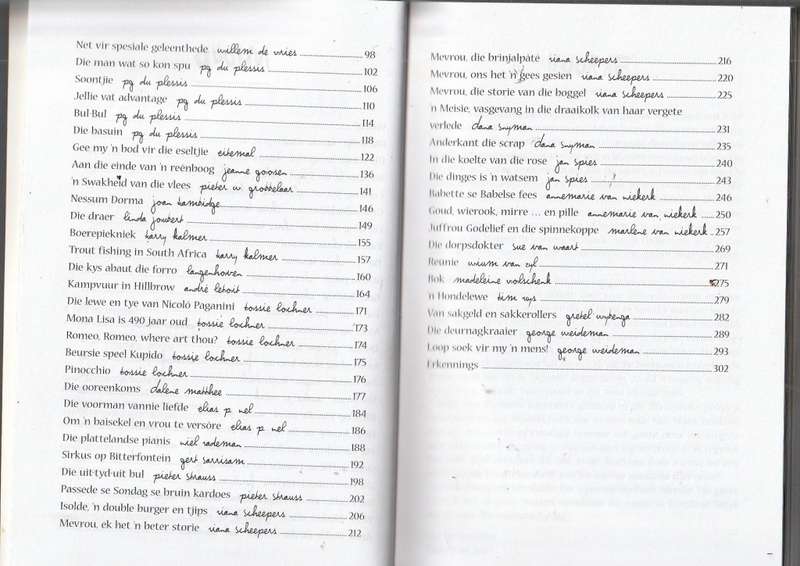 Net vir spesiale geleenthede willem de vries 98
Die man wat so kon spu pg du plessis 102
Soontjie pg du plessis 106
Jellie vat advantage pg du plessis 110
Bul-Bul pg du plessis 114
Die basuin pg du plessis 118
Gee my 'n bod vir die eseltjie eitemal 122
Aan die einde van 'n reënboog jeanne goosen 136
'n Swakheid van die vlees pieter w. grobbelaar 141
Nessum Dorma joan hambidge 146
Die draer linda joubert 149
Boerepiekniek harry kalmer 155
Trout fishing in South Africa harry kalmer 157
Die kys abaut die forro langenhoven 160
Kampvuur in Hillbrow andré letoit 164
Die lewe en tye van Nicoló Paganini tossie lochner 171
Mona Lisa is 490 jaar oud tossie lochner 173
Romeo, Romeo, where art thou? tossie lochner 174
Beursie speel Kupido tossie lochner 175
Pinocchio tossie lochner 176
Die ooreenkoms dalene matthee 177
Die voorman vannie liefde elias p. nel 184
Om 'n baisekel en vrou te versôre elias p. nel 186
Die plattelandse pianis niel rademan 188
Sirkus op Bitterfontein gert sarrisam 192
Die uit-tyd-uit bul pieter strauss 198
Passede se Sondag se bruin kardoes pieter strauss 202
Isolde, 'n double burger en tjips riana scheepers 206
Mevrou, ek het 'n beter storie riana scheepers 212
Mevrou, die brinjalpâté riana scheepers 216
Mevrou, ons het 'n gees gesien riana scheepers 220
Mevrou, die storie van die boggel riana scheepers 225
'n Meisie, vasgevang in die draaikolk van haar vergete
verlede dana snyman 231
Anderkant die scrap dana snyman 235
In die koelte van die rose jan spies 240
Die dinges is 'n watsem jan spies 243
Babette se Babelse fees annemarie van niekerk 246
Goud, wierook, mirre ... en pille annemarie van niekerk 250
Juffrou Godelief en die spinnekoppe marlene van niekerk 257
Die dorpsdokter sue van waart 269
Reünie wium van zyl 271
Bok madeleine volschenk 275
'n Hondelewe tim uys 279
Van sakgeld en sakkerollers gretel wybenga 282
Die deurnagkraaier george weideman 289
Loop soek vir my 'n mens! george weideman 293
Erkennings 302